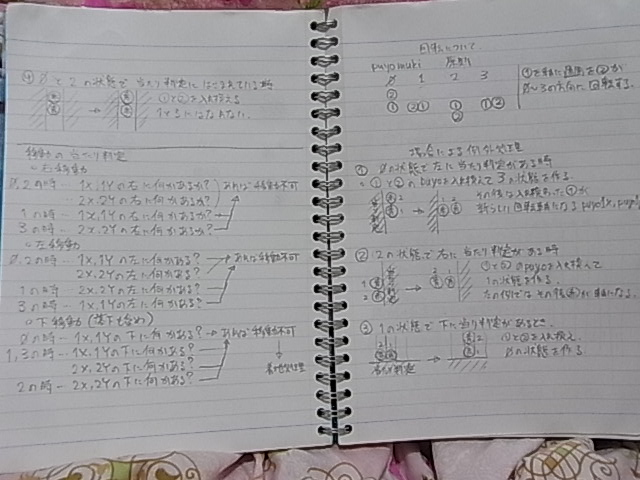 ④ 0と2の状態で当たり判定にはさまれている時
①と②を入れ換える
1や3にはなれない。
移動の当たり判定
○右移動
0,2の時…1x,1yの右に何かあるか?
2x,2yの右に何かあるか?
あれば移動不可
1の時…1x,1yの右に何かあるか?
3の時…2x,2yの右に何かあるか?
○左移動
0,2の時…1x,1yの左に何かある?→あれば移動不可
2x,2yの左に何かある?
1の時…2x,2yの左に何かある?
3の時…1x,1yの左に何かある?
○下移動(落下も含め)
0の時…1x,1yの下に何かある?→あれば移動不可
1,3の時…1x,1yの下に何かある?
2x,2yの下に何かある?
2の時…2x,2yの下に何かある?
回転について
puyomuki 原則
0 1 2 3
② ①
① ②① ② ①②
①を軸に②が
0~3の方向に回転する。
場合による例外処理
① 0の状態で左に当たり判定がある時
①と②のpuyoを入れ換えて3の状態を作る
その後は入れ換わった①が
新らしい回転軸になる
② 2の状態で右に当たり判定がある時
①と②のpuyoを入れ換えて
1の状態を作る。
③ 1の状態で下に当り判定があるとき
①と②を入れ換え、
0の状態を作る。
当たり判定